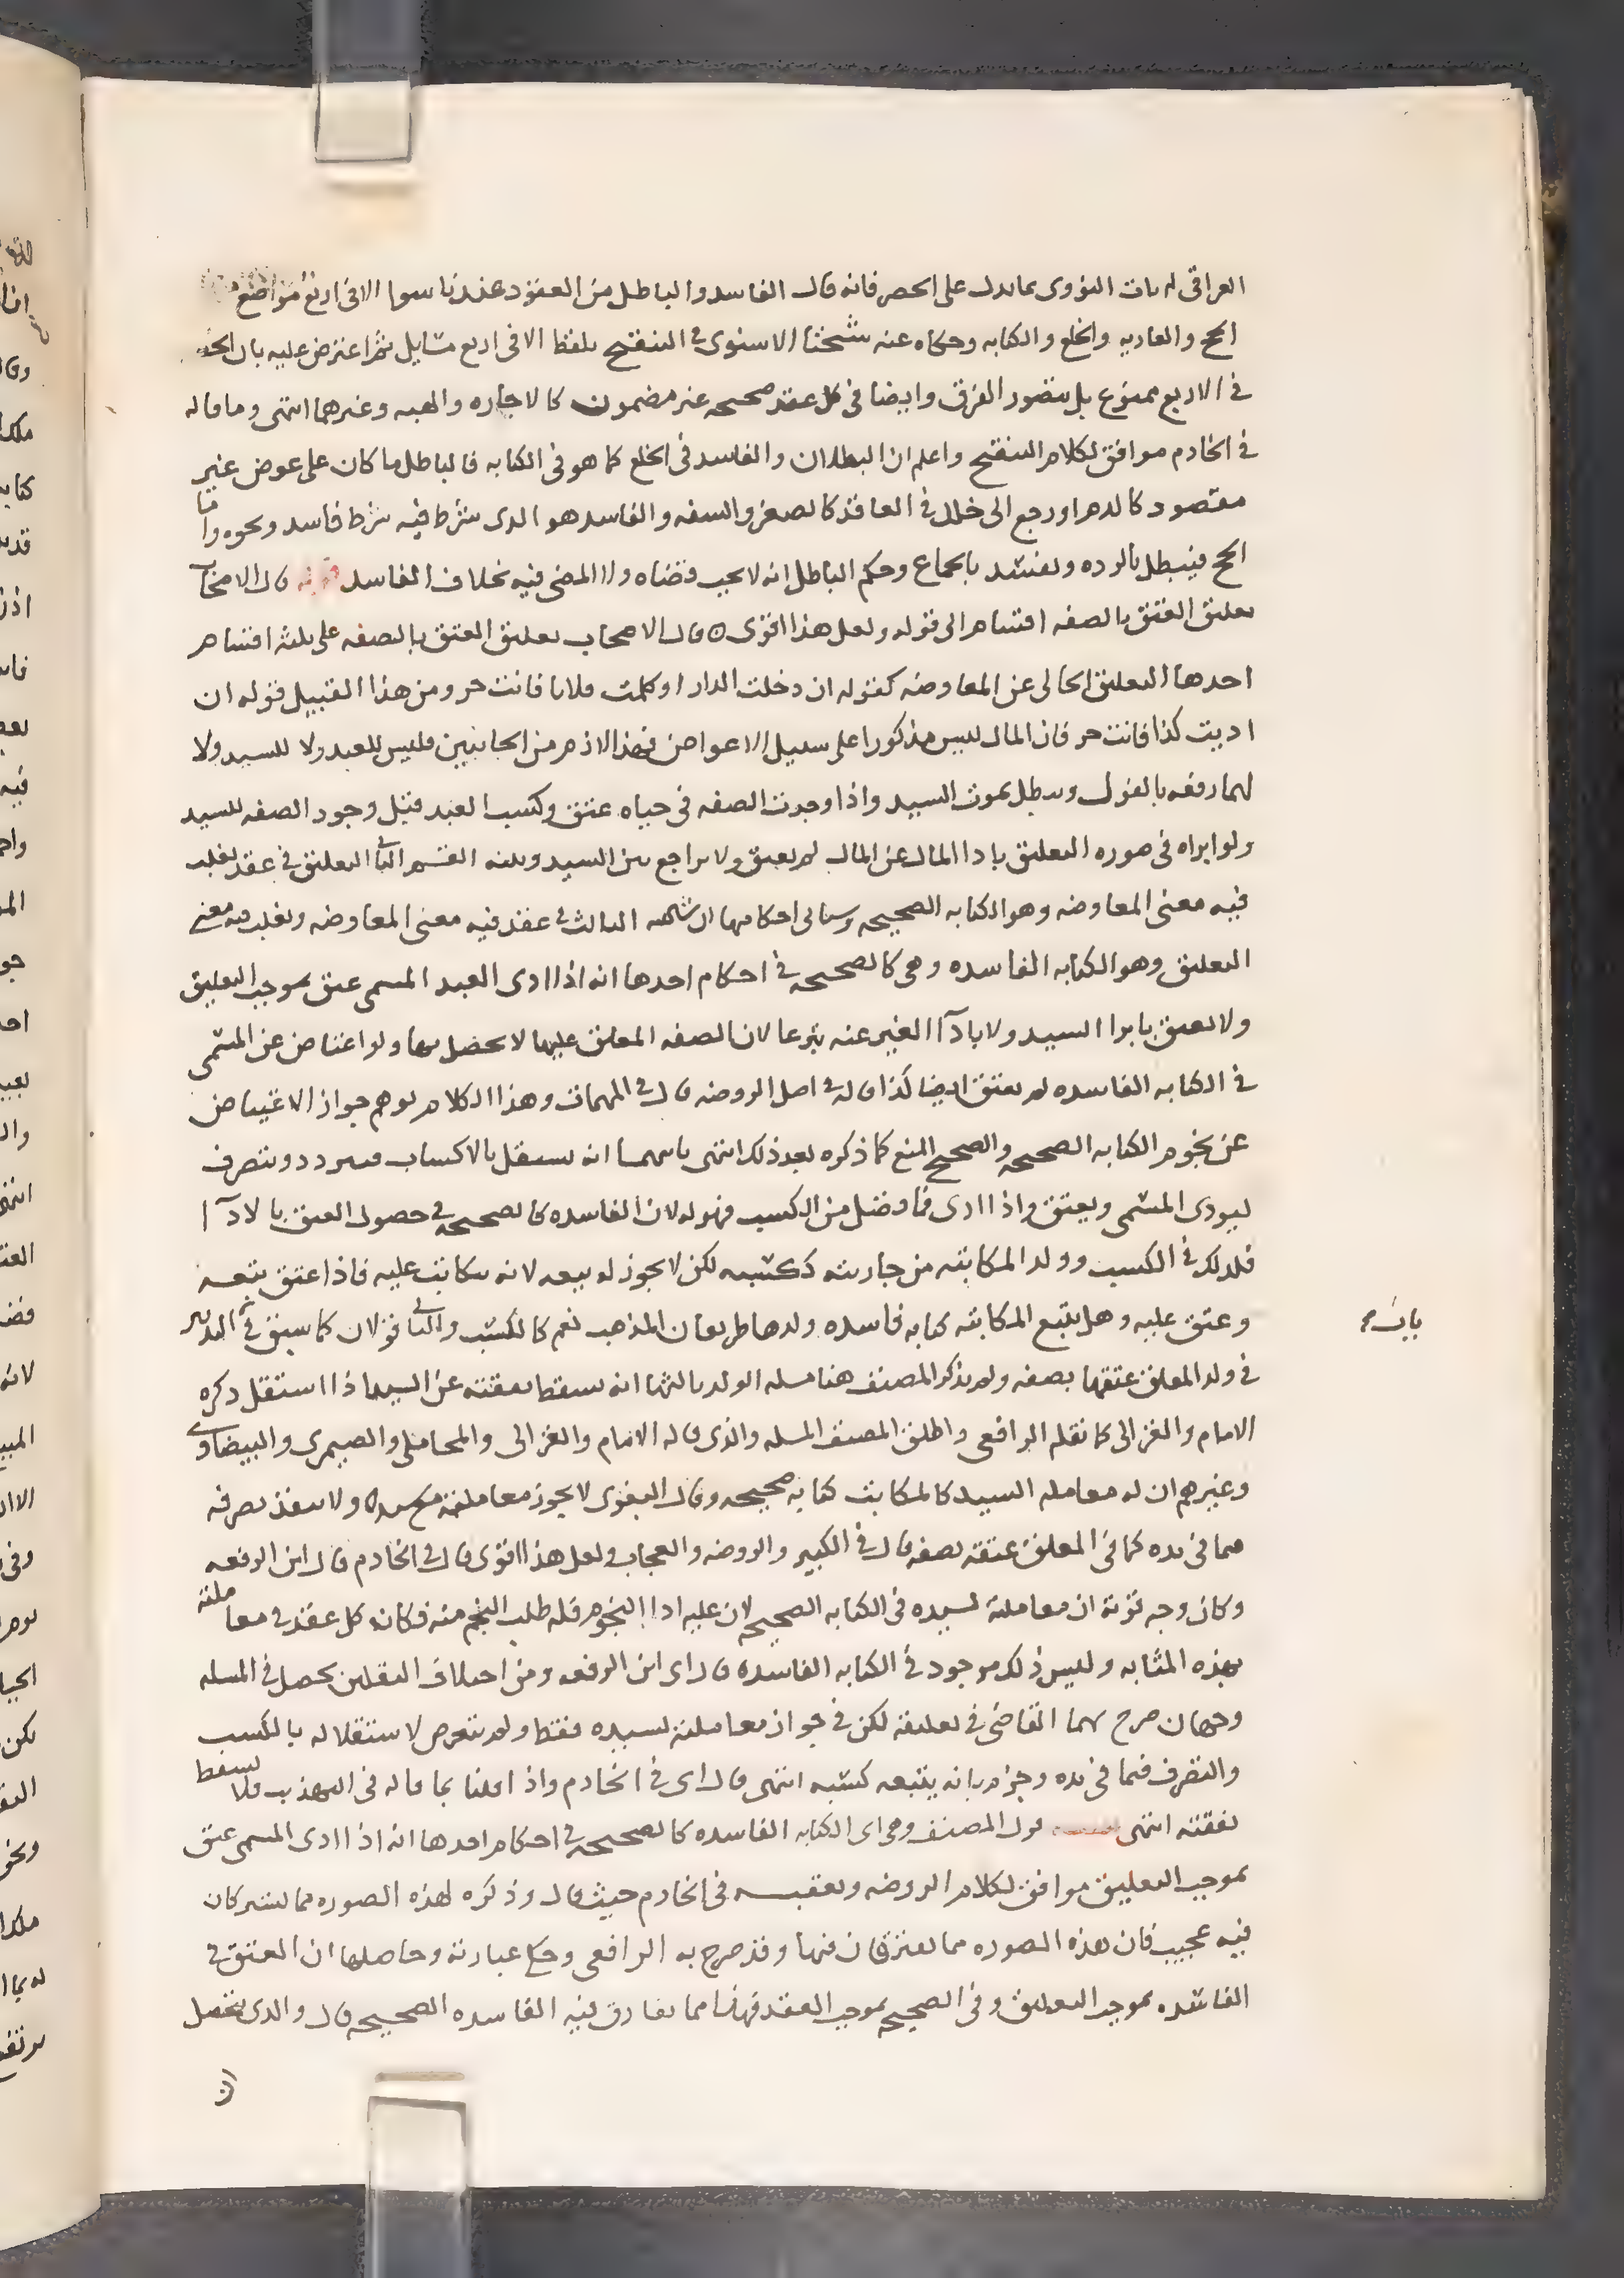 العراقي له بان النووي بما يدل على الحصر فانه قال الفاسد والباطل من العقود عندنا سوا الا في اربع مواضع
الحج والعاريه والخلع والكتابه وحكاه عنه شيخنا الاسنوي في التنقيح بلفظ الا في اربع مسايل ثم اعترض عليه بان الحصر
في الاربع ممنوع بل يتصور الفرق وايضا في كل عقد صحيحه غير مضمون كالاجاره والهبه وغيرهما انتهى وما قاله
في الخادم موافق لكلام التنقيح واعلم ان البطلان والفاسد في الخلع كما هو في الكتابه فالباطل ما كان على عوض غير
مقصود كالدم او رجع الى خلل في العاقد كالصغر والسفه والفاسد هو الذي شرط فيه شرط فاسد ونحوه واما
الحج فيبطل بالرده ويفسد بالجماع وحكم الباطل انه لا يجب قضاه ولا المضي فيه بخلاف الفاسد قوله قال الاصحاب
تعليق العتق بالصفه اقسام الى قوله ولعل هذا اقوى ٥ قال الاصحاب تعليق العتق بالصفه على ثلثه اقسام
احدها التعليق الخالي عن المعاوضه كقوله ان دخلت الدار او كلمت فلانا فانت حر ومن هذا القبيل قوله ان
اديت كذا فانت حر فان المال ليس مذكورا على سبيل الاعواض فهذا لازم من الجانبين فليس للعبد ولا للسيد ولا
لهما رفعه بالقول ويبطل بموت السيد واذا وجدت الصفه في حياه عتق وكسب العبد قبل وجود الصفه للسيد
ولو ابراه في صوره التعليق باداا المال عن المال لم يعتق ولا تراجع بين السيد وبينه القسم الثاني التعليق في عقد يغلب
فيه معنى المعاوضه وهو الكتابه الصحيحه وستاتي احكامها ان شا الله الثالث في عقد فيه معنى المعاوضه ويغلب فيه معنى
التعليق وهو الكتابه الفاسده وهي كالصحيحه في احكام احدها انه اذا ادى العبد المسمى عتق بموجب التعليق
ولا يعتق بابرا السيد ولا باداا الغير عنه تبرعا لان الصفه المعلق عليها لا يحصل بها ولو اعتاض عن المسمى
في الكتابه الفاسده لم يعتق ايضا كذا قاله في اصل الروضه قال في المهمات وهذا الكلام يوهم جواز الاعتياض
عن نجوم الكتابه الصحيحه والصحيح المنع كما ذكره بعد ذلك انتهى ثانيهما انه يستقل بالاكتساب فيتردد ويتصرف
ليودي المسمى ويعتق واذا ادى فما فضل من الكسب فهو له لان الفاسده كالصحيحه في حصول العتق بالاداا
فكذلك في الكسب وولد المكاتبه من جاريته ككسبه لكن لا يجوز له بيعه لانه يكاتب عليه فاذا عتق يتبعه
وعتق عليه وهل يتبع المكاتبه كتابه فاسده ولدها طريقان المذهب نعم كالكسب والثاني قولان كما سبق في التدبير
في ولد المعلق عتقها بصفه ولم يذكر المصنف هنا مسله الولد ثالثها انه يسقط نفقته عن السيد اذا استقل ذكره
الامام والغزالي كما نقله الرافعي واطلق المصنف المسله والذي قاله الامام والغزالي والمحاملي والصيمري والبيضاوي
وغيرهم ان له معامله السيد كالمكاتب كتابه صحيحه وقال البغوي لا يجوز معاملته مع سيده ولا ينفذ تصرفه
فيما في يده كما في المعلق عتقه بصفه قال في الكبير والروضه والعجاب ولعل هذا اقوى قال في الخادم قال ابن الرفعه
وكان وجه قوته ان معاملته لسيده في الكتابه الصحيحه لان عليه اداا النجوم فله طلب النجم منه فكان كل عقد في معاملته
بهذه المثابه وليس ذلك موجود في الكتابه الفاسده قال اى ابن الرفعه ومن اختلاف النقلين يحصل في المسله
وجهان صرح بهما القاضي في تعليقه لكن في جواز معاملته لسيده فقط ولم يتعرض لاستقلاله بالكسب
والتصرف فيما في يده وجزم بانه يتبعه كسبه انتهى قال اى في الخادم واذا قلنا بما قاله في التهذيب فلا يسقط
نفقته انتهى قول المصنف وهي اى الكتابه الفاسده كالصحيحه في احكام احدها انه اذا ادى المسمى عتق
بموجب التعليق موافق لكلام الروضه وتعقبه في الخادم حيث قال وذكره لهذه الصوره مما يشتركان
فيه عجيب فان هذه الصوره مما يفترقان فيها وقد صرح به الرافعي وحكى عبارته وحاصلها ان العتق في
الفاسده بموجب التعليق وفي الصحيح بموجب العقد فهذا مما تفارق فيه الفاسده الصحيحه قال والذي يتحصل